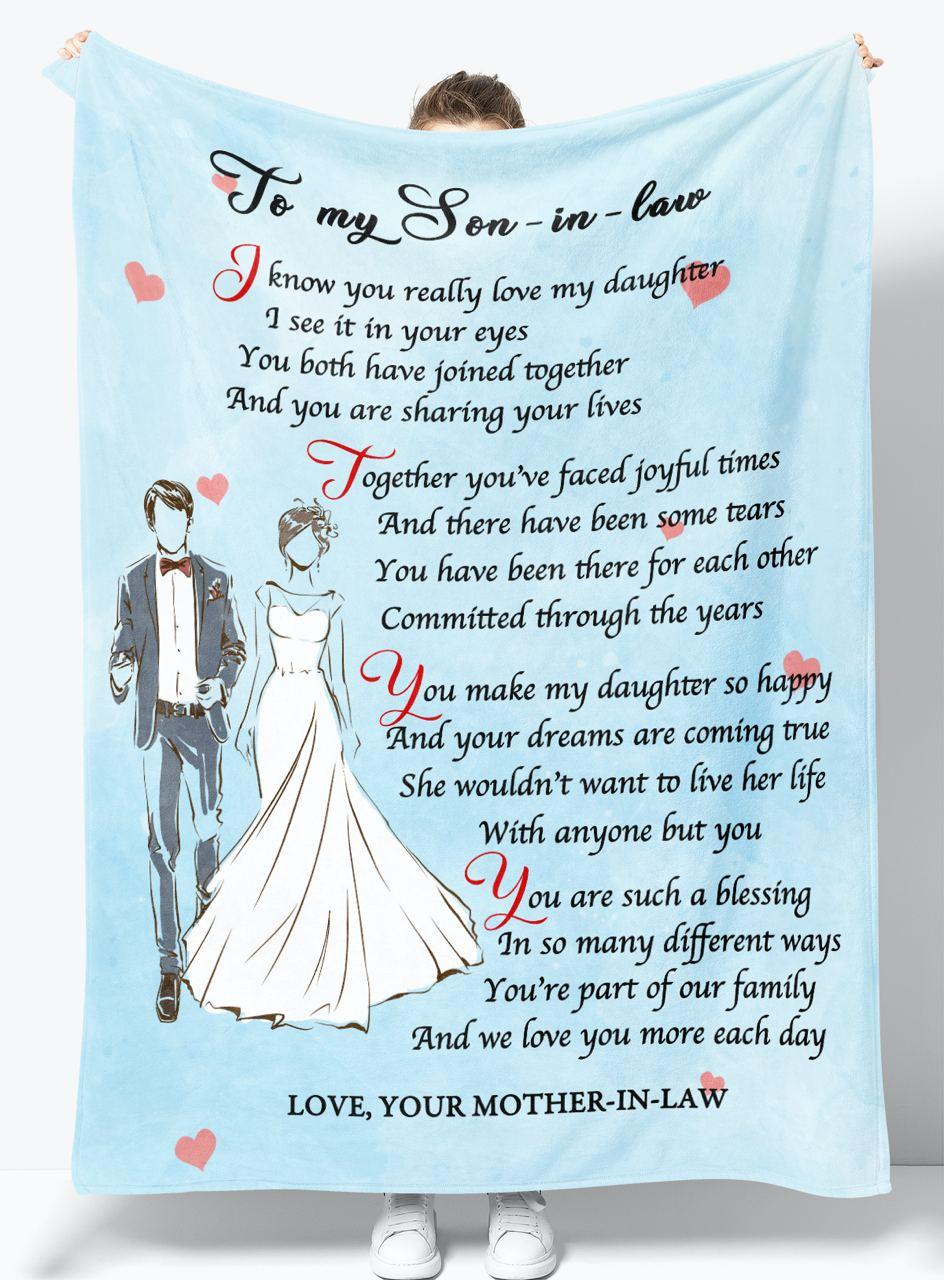 To my Son-in-law
I know you really love my daughter
I see it in your eyes
You both have joined together
And you are sharing your lives
Together you've faced joyful times
And there have been some tears
You have been there for each other
Committed through the years
You make my daughter so happy
And your dreams are coming true
She wouldn't want to live her life
With anyone but you
You are such a blessing
In so many different ways
You're part of our family
And we love you more each day
LOVE, YOUR MOTHER-IN-LAW